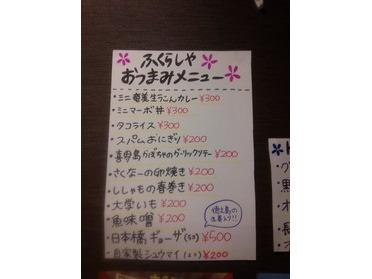 ふくらしや
おつまみメニュー
・ミニ奄美生うこんカレー ¥300
・ミニマーボ丼 ¥300
・タコライス ¥300
・スパムおにぎり ¥200
・喜界島かぼちゃのガーリックソテー ¥200
・さくなーの卵焼き ¥200
・ししゃもの春巻き ¥200
・大学いも ¥200
・魚味噌 ¥200
徳之島の
生姜入り!!
・日本橋ギョーザ(5コ) ¥500
・自家製シュウマイ ¥200